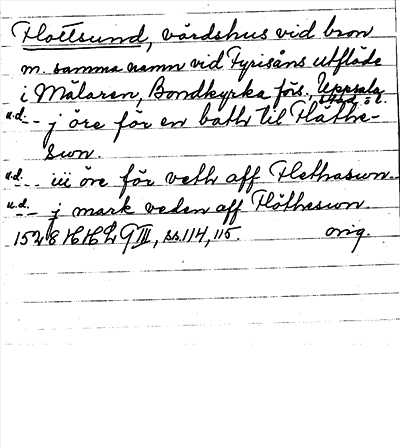 Flottsund, värdshus vid bron
m. samma namn vid Fyrisåns utflöde
i Mälaren, Bondkyrka förs., Uppsala
u.d. -- j öre för en bath til Flåthe-
swn.
u.d. -- iii öre för veth aff Flethaswn.
u.d. -- j mark veden aff Flötheswn.
1528 HHL 9 III, ss. 114, 115. orig.